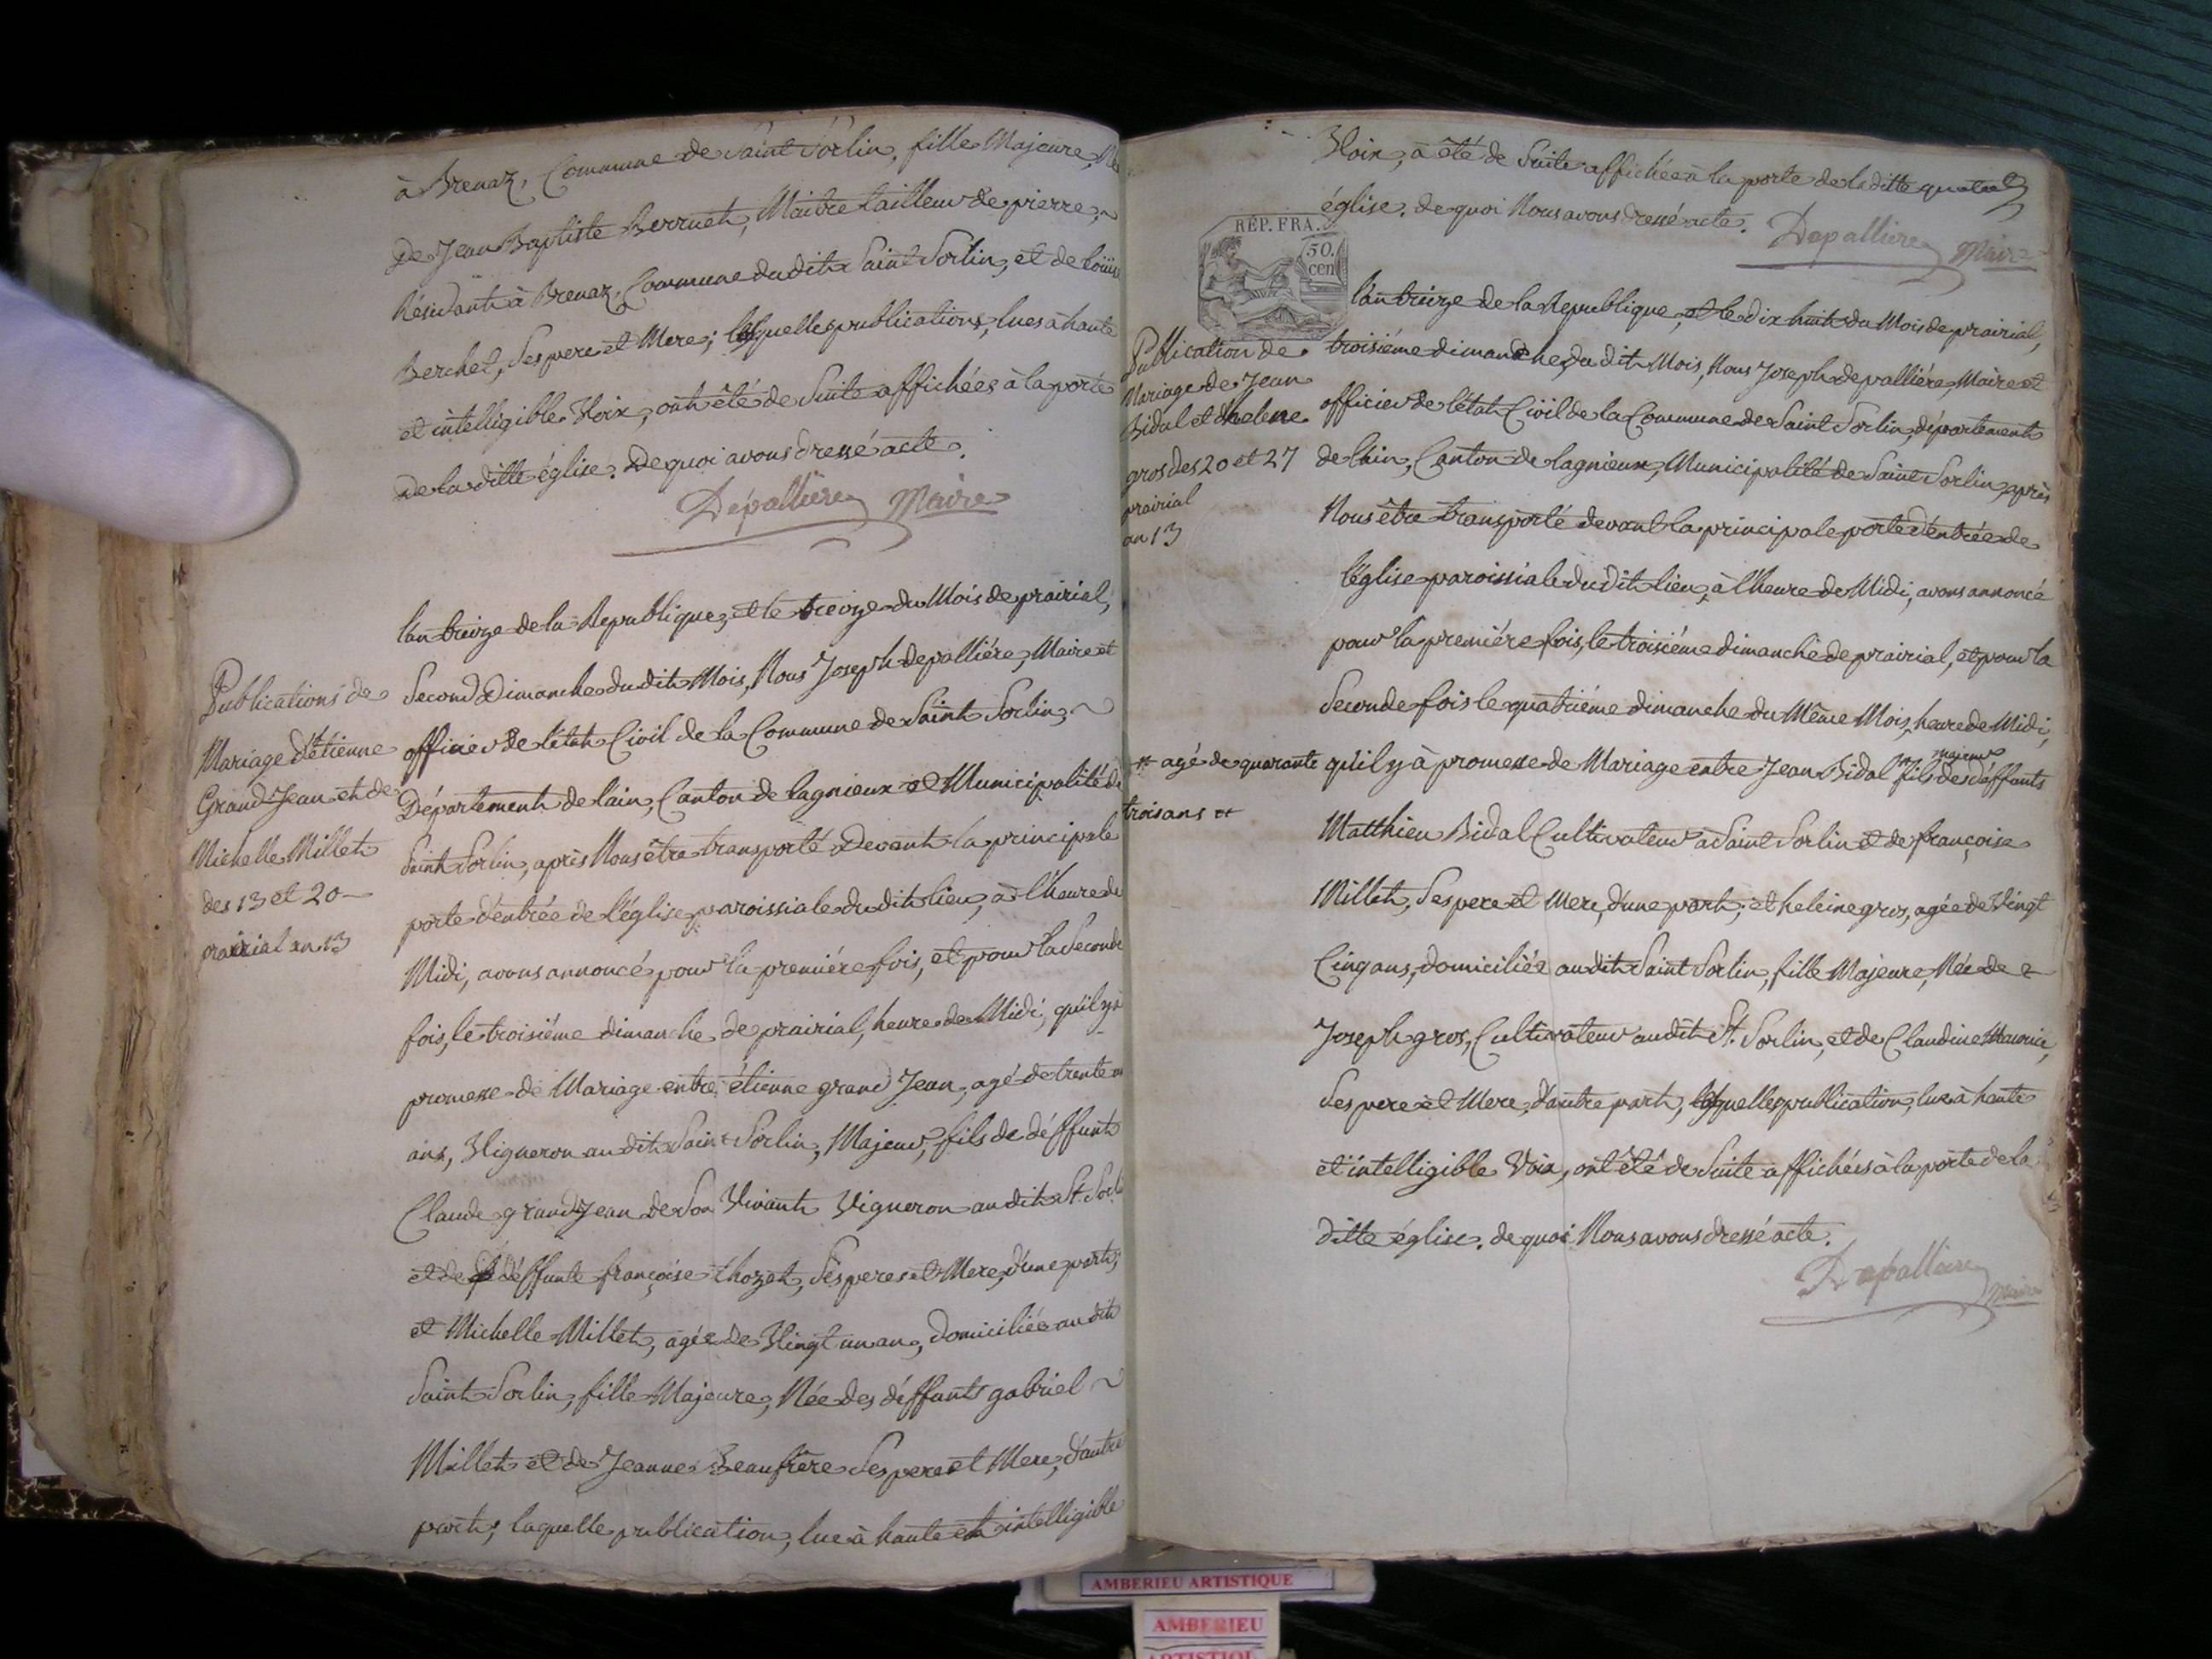 à Brenaz, Commune de Saint Sorlin, fille Majeure, Née
de Jean Baptiste Berruet, Maitre tailleur de pierre,
Résidant à Brenaz, Commune du dit Saint Sorlin, et de
Berchet, Ses pere et Mere; lesquelles publications, lues à haute
et intelligible Voix, ont été de Suite affichées à la porte
de la ditte église. De quoi avons dressé acte.
Depalliere Maire
Publications de
Mariage d'étienne
Grand Jean et de
Michelle Millet
des 13 et 20
prairial an 13
l'an treize de la Republique, et le treize du Mois de prairial,
Second Dimanche du dit Mois, Nous Joseph depalliére, Maire et
officier de l'état Civil de la Commune de Saint Sorlin,
Département de l'ain, Canton de lagnieux et Municipalité de
Saint Sorlin, après Nous être transporté Devant la principale
porte d'entrée de l'église paroissiale du dit lieu, à l'heure de
Midi, avons annoncé pour la premiére fois, et pour la Seconde
fois, le troisiéme dimanche de prairial, heure de Midi, qu'il y à
promesse de Mariage entre étienne grand Jean, agé de trente
ans, Vigneron au dit Saint Sorlin, Majeur, fils de déffunt
Claude grand Jean de Son Vivant Vigneron au dit St. Sorlin
et de déffunte françoise thozet, Ses peres et Mere, d'une part;
et Michelle Millet, agée de Vingt un an, domiciliée au dit
Saint Sorlin, fille Majeure, Née des déffunts gabriel
Millet et de Jeanne Beaufrère Ses pere et Mere, d'autre
part; laquelle publication, lue à haute et intelligible
Voix, à été de Suite affichée à la porte de la ditte
église. de quoi Nous avons dressé acte.
Depalliere Maire
RÉP. FRA.
50.
cen
Publication de
Mariage de Jean
Bidal et d'helene
gros des 20 et 27
prairial
an 13
l'an treize de la Republique, et le dix huit du Mois de prairial,
troisiéme dimanche, du dit Mois, Nous Joseph depalliére, Maire et
officier de l'état Civil de la Commune de Saint Sorlin, département
de l'ain, Canton de lagnieux, Municipalité de Saint Sorlin, après
Nous être transporté devant la principale porte d'entrée de
l'église paroissiale du dit lieu, à l'heure de Midi, avons annoncé
pour la premiére fois, le troisiéme dimanche de prairial, et pour la
Seconde fois le quatriéme dimanche du Même Mois, heure de Midi,
majeur
qu'il y à promesse de Mariage entre Jean Bidal fils de déffunts
agé de quarante
trois ans
Matthieu Bidal Cultivateur à Saint Sorlin et de françoise
Millet, Ses pere et Mere, d'une part; et heleine gros, agée de Vingt
Cinq ans, domiciliée au dit Saint Sorlin, fille Majeure, Née de
Joseph gros, Cultivateur au dit St. Sorlin, et de Claudine Maurice,
Ses pere et Mere, d'autre part, lesquelles publication, lue à haute
et intelligible Voix, ont été de Suite affichées à la porte de la
ditte église. de quoi Nous avons dressé acte.
Depalliere Maire
AMBERIEU ARTISTIQUE
AMBERIEU
ARTISTIQUE